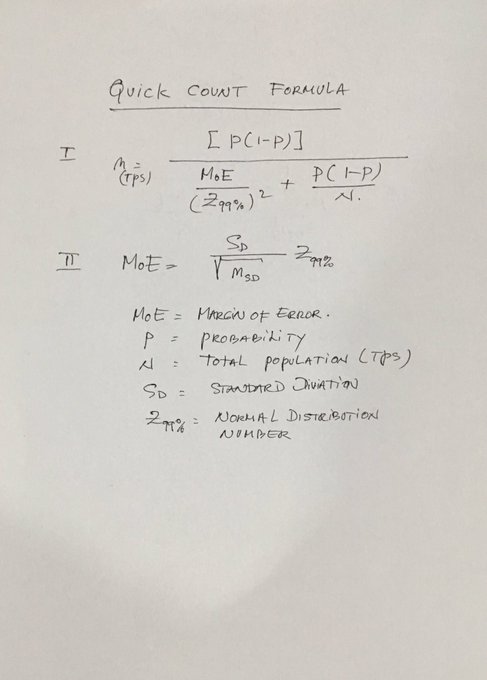 QUICK COUNT FORMULA
I n = (TPS) [P(1-P)] / MoE / (Z99%)² + P(1-P) / N.
II MoE = SD / √mSD Z99%
MoE = MARGIN OF ERROR.
P = PROBABILITY
N = TOTAL POPULATION (TPS)
SD = STANDARD DIVIATION
Z99% = NORMAL DISTRIBUTION
NUMBER